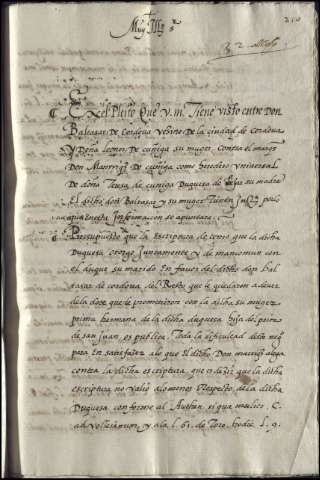 Muy Illº Sr
En el Pleito Que V. m. Tiene visto entre Don
Baltasar De Cordova vezino De la ciudad de Cordova
y Doña leonor De cuñiga su muger. Contra el
Don Manrriq De cuñiga como heredero universal
De doña Teresa de cuniga Duquesa de su madre
El dicho don Baltasar y su muger
aqui en esta Informacion se apuntara
Presupuesto que la escriptura de censo que la dicha
Duquesa otorgo Juntamente y de mancomun con
el duque su marido En favor del dicho don bal
tasar de cordova del Resto que le quedaron a dever
de la dote que le prometieron con la dicha su muger
prima hermana de la dicha duquesa hija de
de san Juan es publica. Toda la dificultad deste
esta En satisfazer a lo que El dicho Don manrriq alega
contra la dicha escriptura que es dezir que la dicha
escriptura no valio alomenos Respecto de la dicha
Duquesa conforme al Authen. si qua mulier. C.
ad velleianum y a la l. 61. de Toro. hodie l. 9.